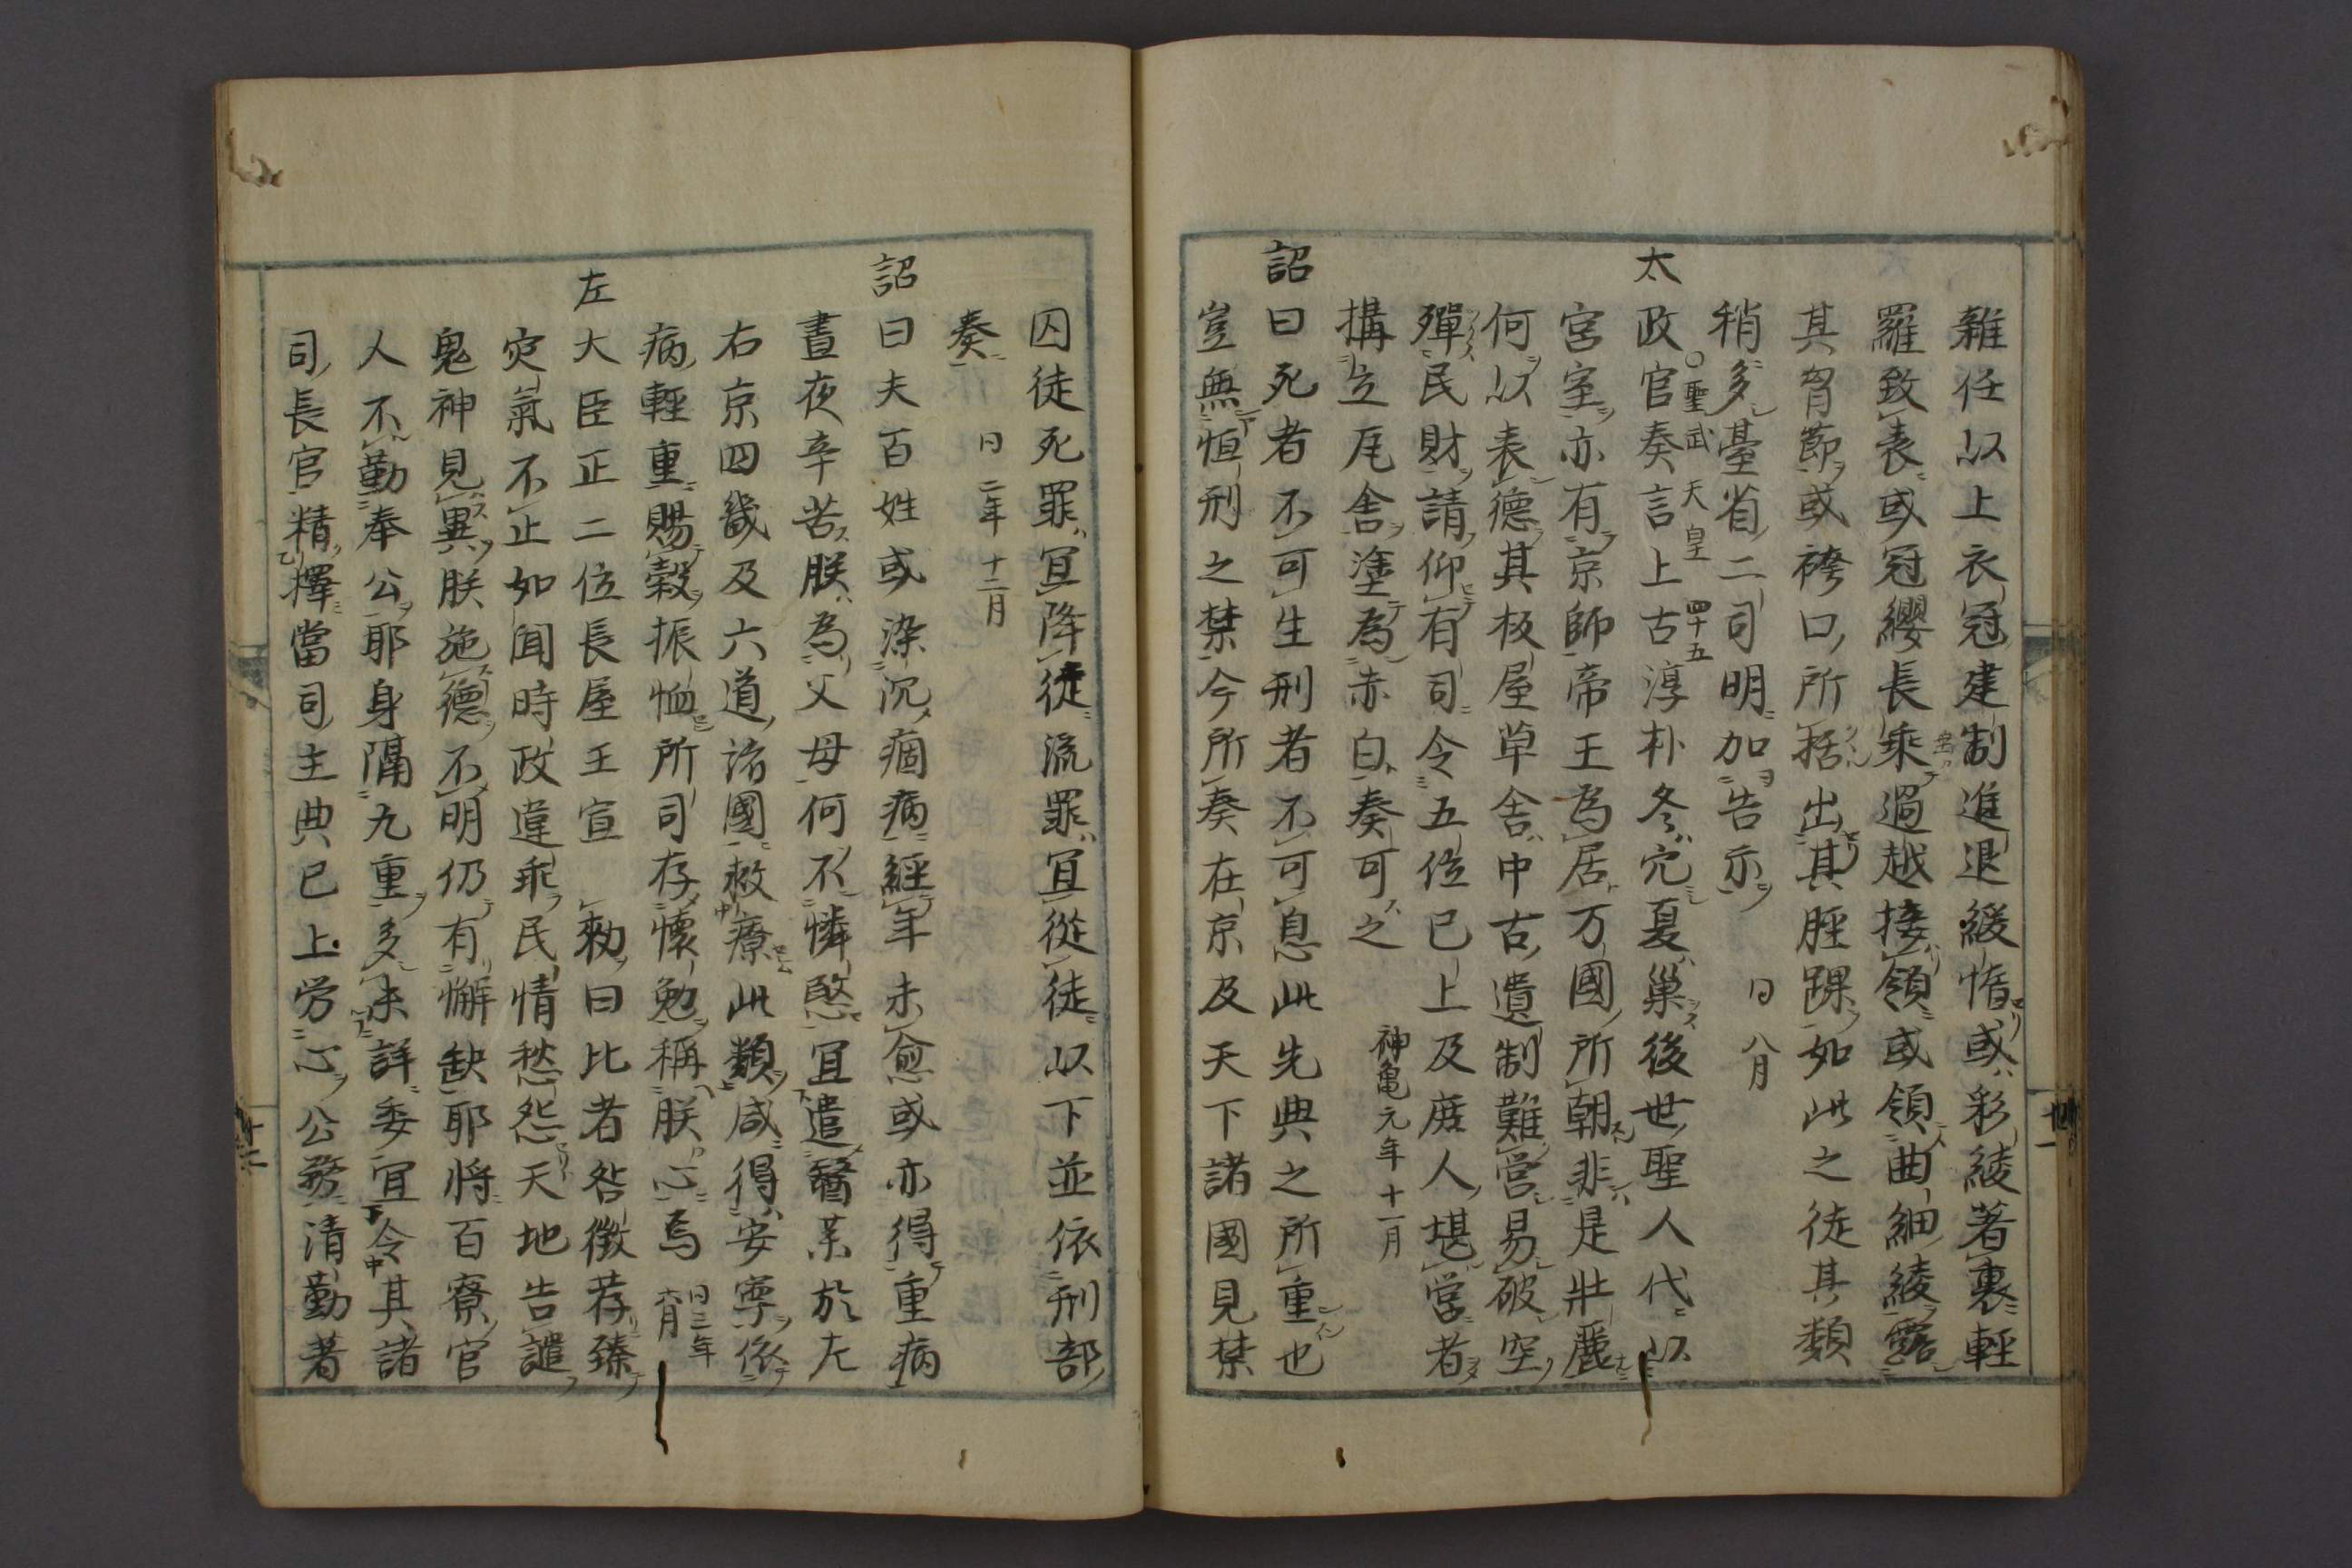 雜任以上衣冠建制進退緩惰或彩綾著裏輕
羅致表或冠纓長乘過越接領或領曲細綾露
其胷節或袴口所括出其脛踝如此之徒其類
稍多臺省二司明加告示 日八月
〇聖武天皇四十五
太政官奏言上古淳朴冬穴夏巢後世聖人代以
宮室亦有京師帝王為居万國所朝非是壯麗
何以表德其板屋草舍中古遺制難営易破空
殫民財請仰有司令五位已上及庶人堪営者
搆立瓦舍塗為赤白奏可之 神龜元年十一月
詔曰死者不可生刑者不可息此先典之所重也
豈無恒刑之禁今所奏在京及天下諸國見禁
十一
囚徒死罪宜降從流罪宜從徒以下並依刑部
奏 日二年十二月
詔曰夫百姓或染沉痼病經年未愈或亦得重病
晝夜辛苦朕為父母何不憐愍宜遣醫藥於左
右京四畿及六道諸國救療此類咸得安寧依
病輕重賜穀振恤所司存懷勉稱朕心焉 日三年六月
左大臣正二位長屋王宣 勅曰比者咎徵荐臻
灾氣不止如聞時政違乖民情愁怨天地告譴
鬼神見異朕施德不明仍有懈缺耶将百寮官
人不勤奉公耶身隔九重多未詳委宜令其諸
司長官精擇當司主典已上労心公務清勤著
十二